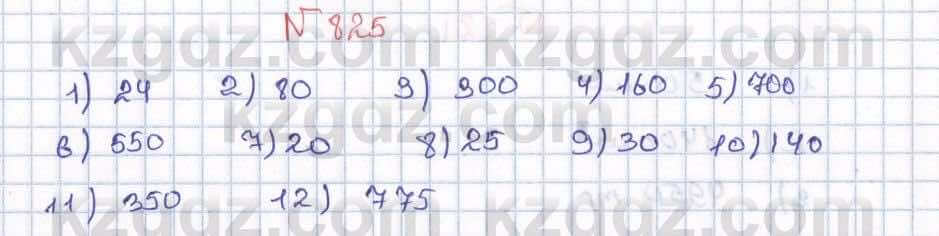 № 825
1) 24 2) 80 3) 900 4) 160 5) 700
6) 550 7) 20 8) 25 9) 30 10) 140
11) 350 12) 775
kzgdz.com kzgdz.com
kzgdz.com
kzgdz.com kzgdz.com